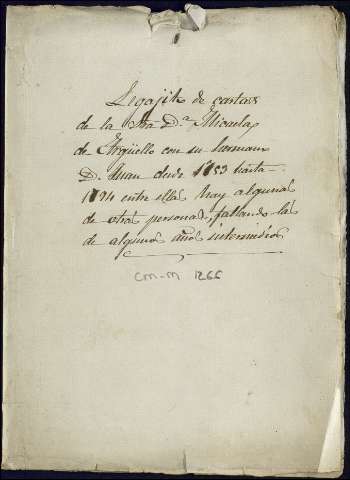 Legajito de cartas
de la Sra D.ª Micaela
de Argüello con su hermano
D. Juan desde 1753 hasta
1794 entre ellas hay algunas
de otras personas, faltando las
de algunos años intermedios
CM-M 1266